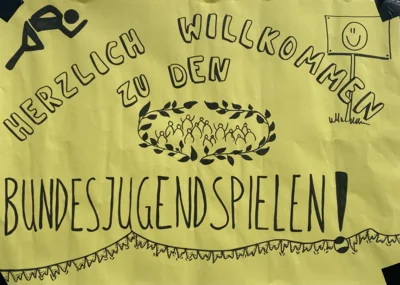 HERZLICH WILLKOMMEN
ZU DEN
BUNDESJUGENDSPIELEN!